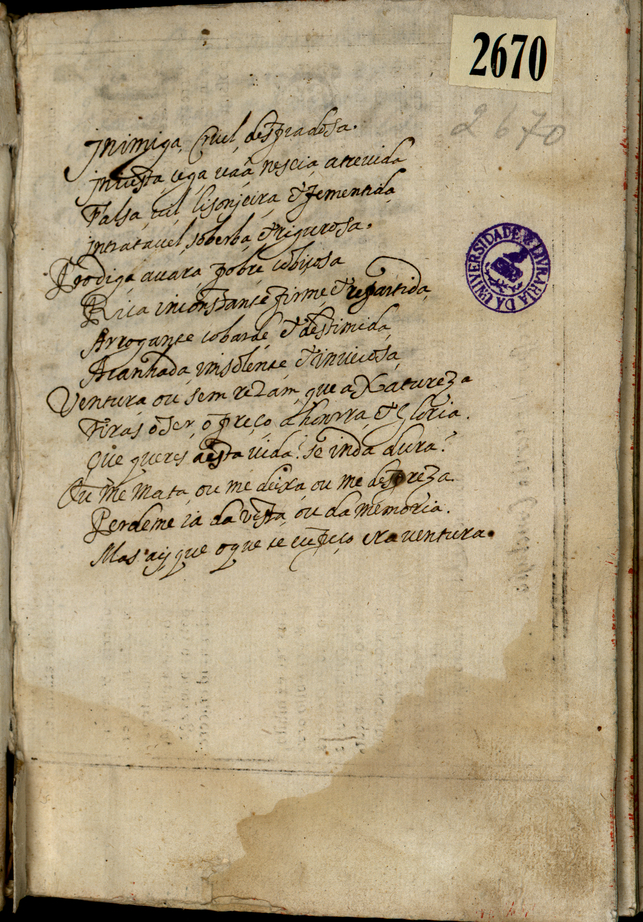 2670
2670
UNIVERSIDADE LIVRARIA DA
Inimiga, Cruel, despiadosa.
injusta cega vaã nescia atrevida
Falsa, vil, lisonjeira, & fementida,
intratavel soberba, & rigurosa.
Prodiga avara pobre cobiçosa
Rica inconstante firme & repartida,
Arrogante cobarde, & destimida,
Acanhada, insolente & invieiosa,
Ventura ou sem rezam, que a Natureza
Tiras o ser, o preço, a honrra, & Gloria.
Que queres a esta vida? se inda dura?
Ou me mata, ou me deixa, ou me despreza.
Perdeme ia da vista, ou da memoria.
Mas ay que o que te eu peço era ventura.